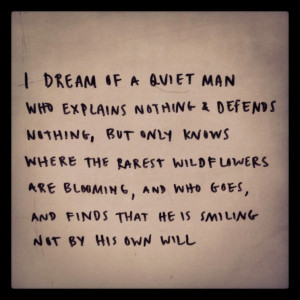 I DREAM OF A QUIET MAN
WHO EXPLAINS NOTHING & DEFENDS
NOTHING, BUT ONLY KNOWS
WHERE THE RAREST WILDFLOWERS
ARE BLOOMING, AND WHO GOES,
AND FINDS THAT HE IS SMILING
NOT BY HIS OWN WILL